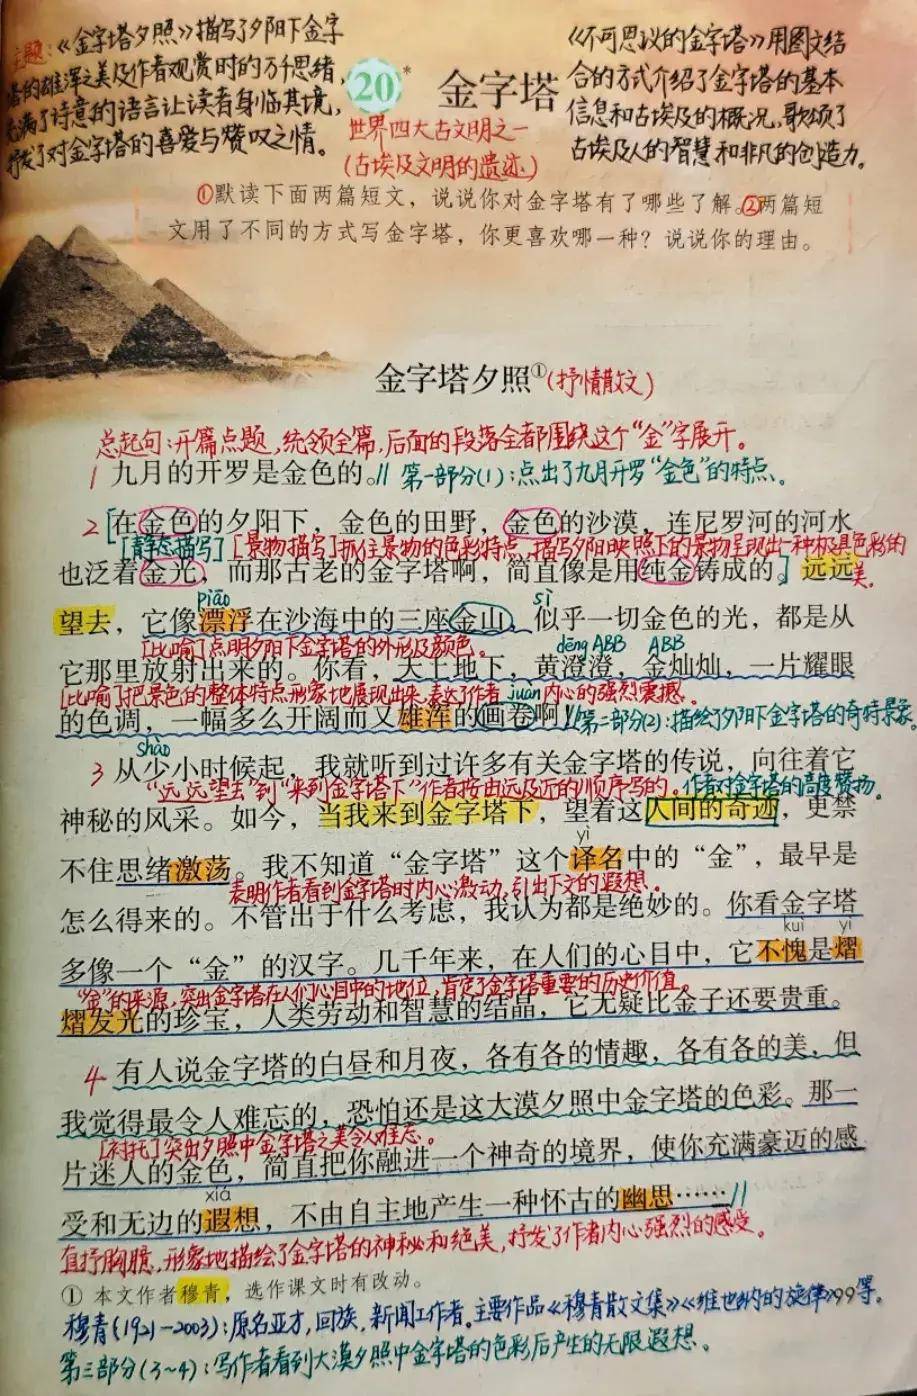 主题:《金字塔夕照》描写了夕阳下金字
塔的雄浑之美及作者观赏时的万千思绪,
充满了诗意的语言让读者身临其境,
抒发了对金字塔的喜爱与赞叹之情。
20*
金字塔
世界四大古文明之一
(古埃及文明的遗迹)
《不可思议的金字塔》用图文结
合的方式介绍了金字塔的基本
信息和古埃及的概况,歌颂了
古埃及人的智慧和非凡的创造力。
①默读下面两篇短文,说说你对金字塔有了哪些了解。②两篇短
文用了不同的方式写金字塔,你更喜欢哪一种?说说你的理由。
金字塔夕照①(抒情散文)
总起句:开篇点题,统领全篇,后面的段落全都围绕这个“金”字展开。
1 九月的开罗是金色的。// 第一部分(1):点出了九月开罗“金色”的特点、
2 [在金色的夕阳下,金色的田野,金色的沙漠,连尼罗河的河水
[静态描写] [景物描写]抓住景物的色彩特点,描写夕阳映照下的景物呈现出一种极具色彩的
美。
也泛着金光,而那古老的金字塔啊,简直像是用纯金铸成的。] 远远
piāo sì
望去,它像漂浮在沙海中的三座金山。似乎一切金色的光,都是从
[比喻]点明夕阳下金字塔的外形及颜色。 dēng ABB ABB
它那里放射出来的。你看,天上地下,黄澄澄,金灿灿,一片耀眼
[比喻]把景色的整体特点形象地展现出来,表达了作者内心的强烈震撼。 juàn
的色调,一幅多么开阔而又雄浑的画卷啊!//第二部分(2):描绘了夕阳下金字塔的奇特景象。
shào
3 从少小时候起,我就听到过许多有关金字塔的传说,向往着它
“远远望去”到“来到金字塔下”作者按由远及近的顺序写的。作者对金字塔的高度赞扬。
神秘的风采。如今,当我来到金字塔下,望着这人间的奇迹,更禁
yì
不住思绪激荡。我不知道“金字塔”这个译名中的“金”,最早是
表明作者看到金字塔时内心激动,引出下文的遐想。
怎么得来的。不管出于什么考虑,我认为都是绝妙的。你看金字塔
kuì yì
多像一个“金”的汉字。几千年来,在人们的心目中,它不愧是熠
“金”的来源,突出金字塔在人们心目中的地位,肯定了金字塔重要的历史价值。
熠发光的珍宝,人类劳动和智慧的结晶,它无疑比金子还要贵重。
4 有人说金字塔的白昼和月夜,各有各的情趣,各有各的美,但
我觉得最令人难忘的,恐怕还是这大漠夕照中金字塔的色彩。那一
[衬托]突出夕照中金字塔之美令人难忘。
片迷人的金色,简直把你融进一个神奇的境界,使你充满豪迈的感
xiá
受和无边的遐想,不由自主地产生一种怀古的幽思……//
直抒胸臆,形象地描绘了金字塔的神秘和绝美,抒发了作者内心强烈的感受。
① 本文作者穆青,选作课文时有改动。
穆青(1921-2003):原名亚才,回族,新闻工作者。主要作品《穆青散文集》《维也纳的旋律》99等。
第三部分(3~4):写作者看到大漠夕照中金字塔的色彩后产生的无限遐想。